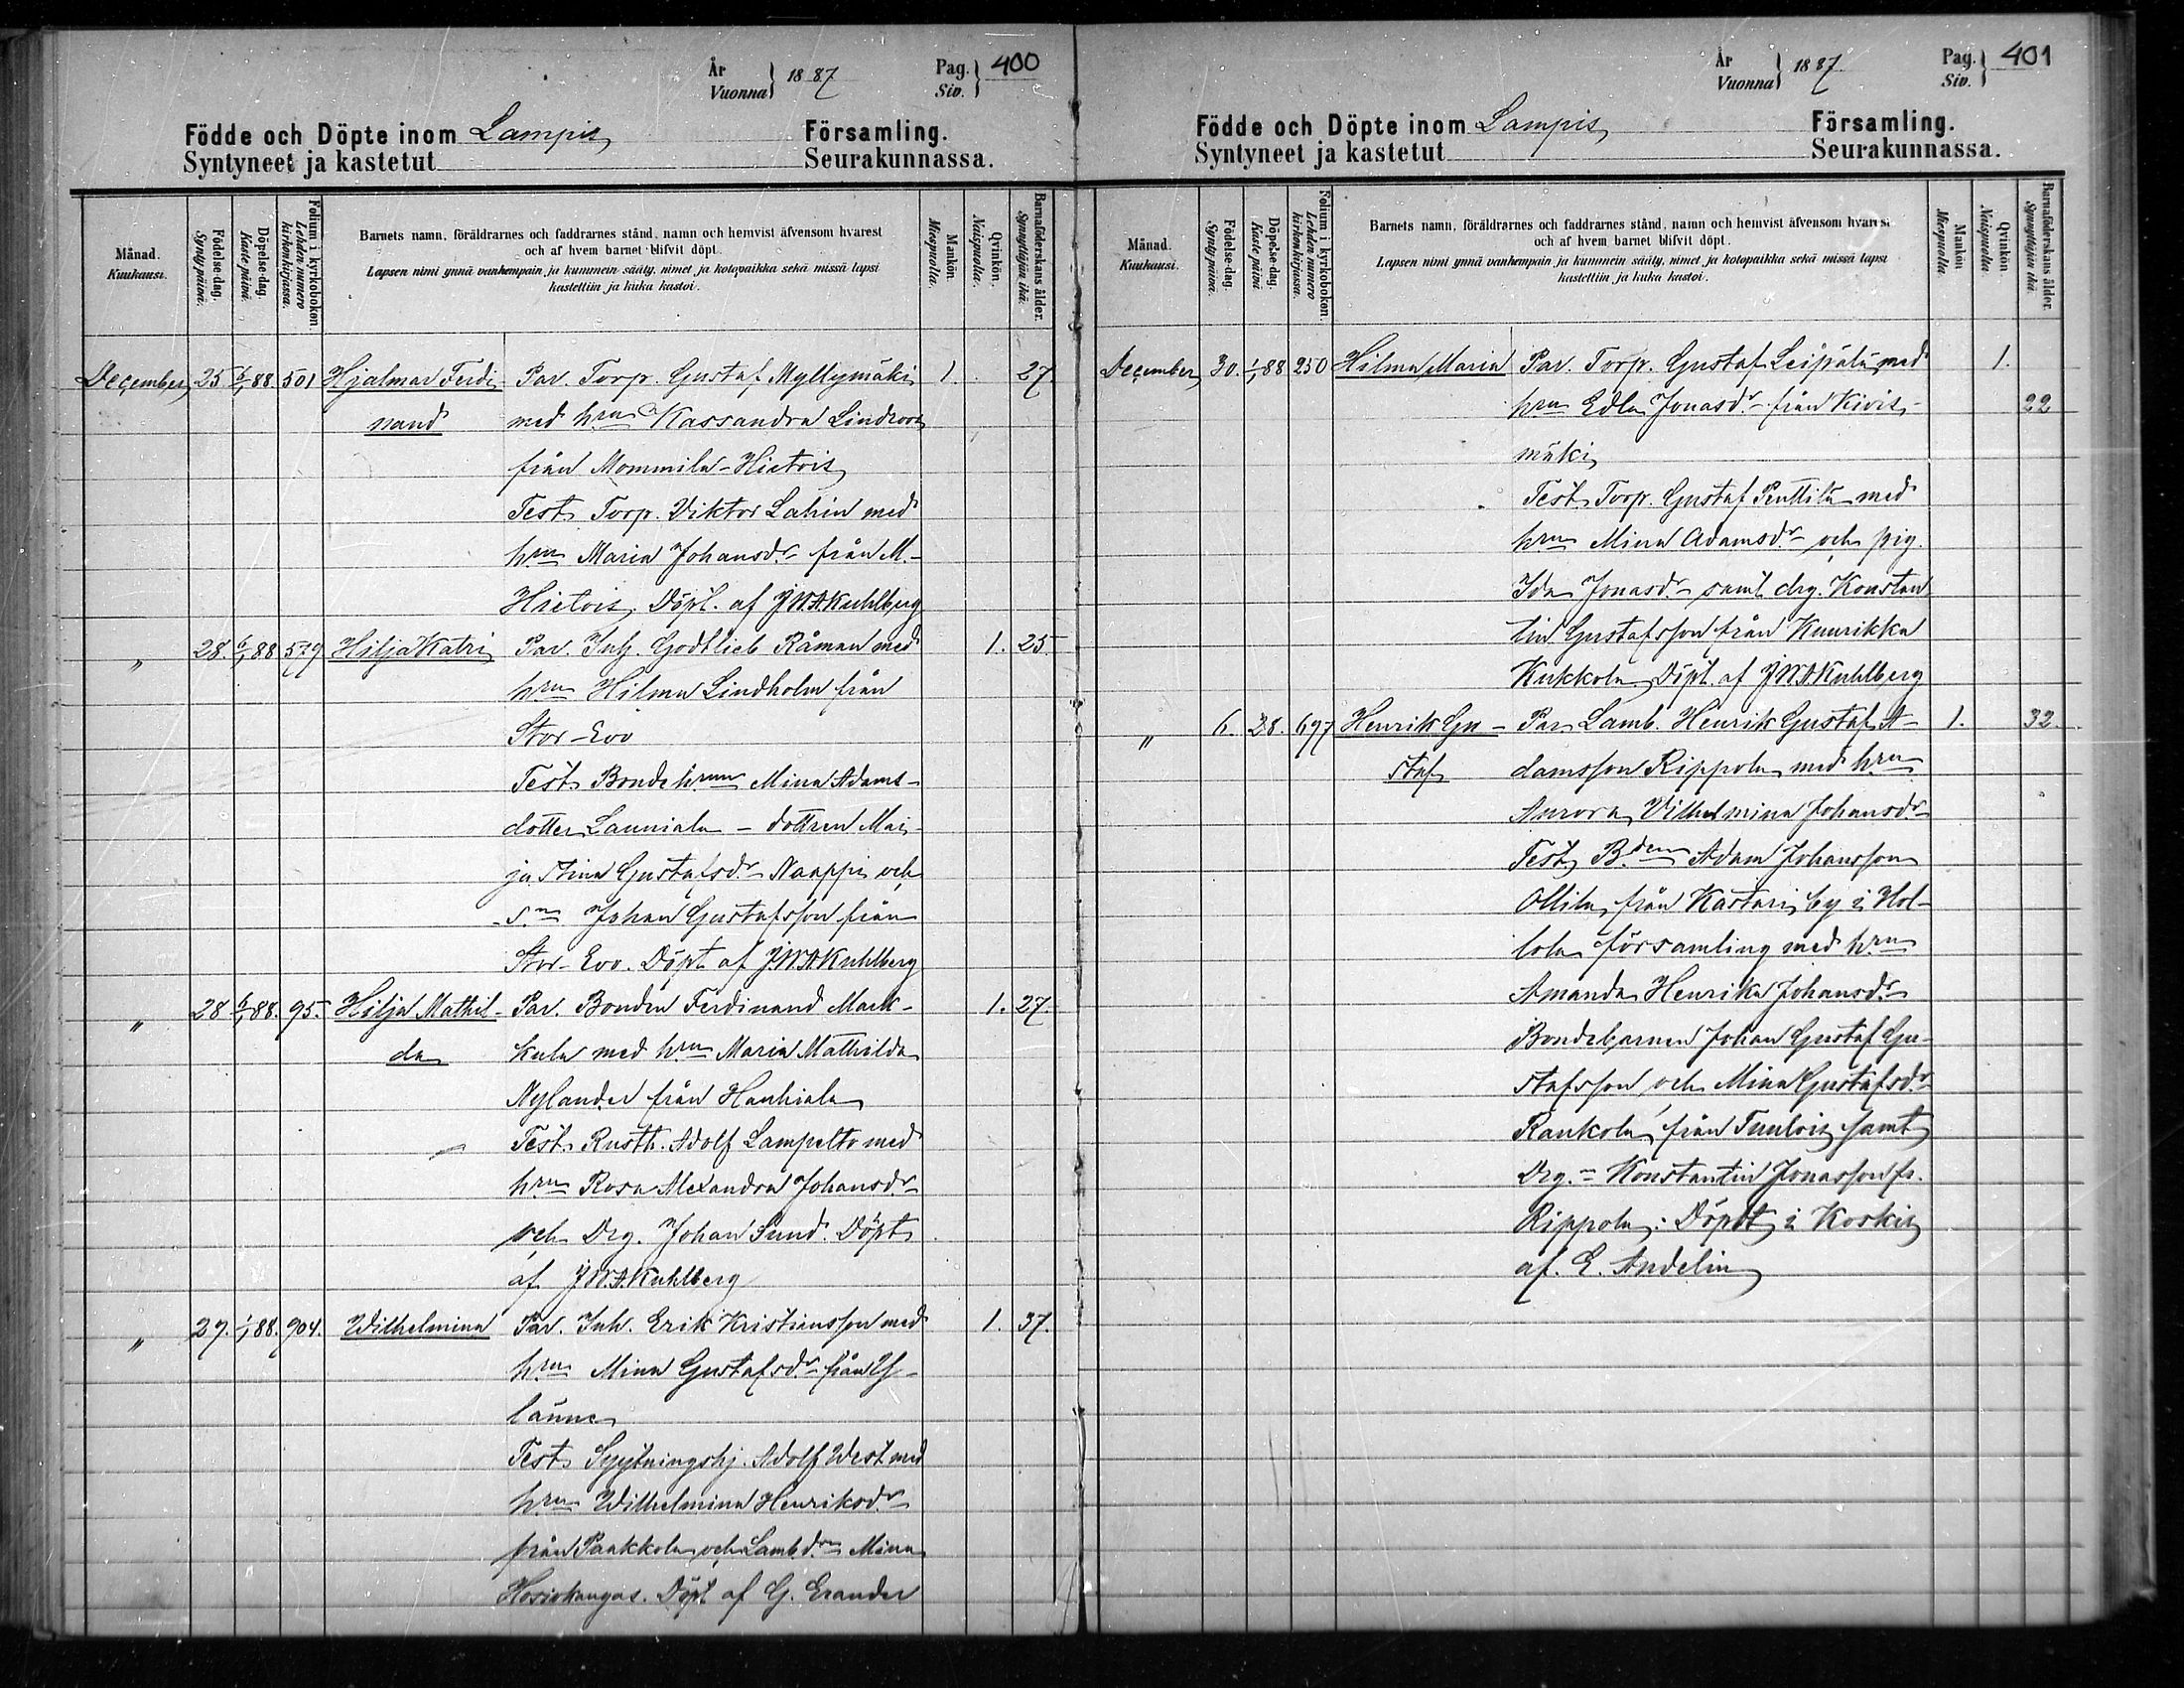 År
Vuonna } 1887
Pag.
Siv. } 400
Födde och Döpte inom Lampis Församling.
Syntyneet ja kastetut Seurakunnassa.
Månad.
Kuukausi.
Födelse-dag.
Synty päivä.
Döpelse-dag.
Kaste päivä.
Folium i kyrkoboken.
Lehden numero
kirkonkirjassa.
Barnets namn, föräldrarnes och faddrarnes stånd, namn och hemvist äfvensom hvarest
och af hvem barnet blifvit döpt.
Lapsen nimi ynnä vanhempain ja kummein sääty, nimet ja kotopaikka sekä missä lapsi
kastettiin ja kuka kastoi.
Mankön.
Miespuolta.
Qvinkön.
Naispuolta.
Barnaföderskans ålder.
Synnyttäjän ikä.
December 25 6/1 88 501 Hjalmar Ferdi- Par. Torp. Gustaf Myllymäki 1. 27.
nand med hru Kassandra Lindroos
från Mommila-Hietois
Test. Torp. Viktor Lahin med
hru Maria Johansdr från M.-
Hietois. Döpt. af J W A Kuhlberg
" 28. 6/1 88 579 Hilja Katri Par. Inh. Godtlieb Råman med 1. 25.
hru Hilma Lindholm från
Stor-Evo
Test. Bondehrun Mina Adams-
dotter Launiala - dottren Mai-
ja Stina Gustafsdr Naappi och
sn Johan Gustafsson från
Stor-Evo. Döpt af J W A Kuhlberg
" 28 6/1 88. 95. Hilja Mathil- Par. Bonden Ferdinand Mark- 1. 27.
da kula med hru Maria Mathilda
Nylander från Hauhiala
Test. Rusth. Adolf Lampelto med
hru Rosa Alexandra Johansdr
och Drg. Johan Sund. Döpt
af J W A Kuhlberg
" 29. 1/1 88. 904. Wilhelmina Par. Inh. Erik Kristiansson med 1. 37.
hru Mina Gustafsdr från Y-
länne
Test. Sytningshj. Adolf West med
hru Wilhelmina Henriksdr
från Paakkola och Lambdrn Mina
Hosiokangas. Döpt af G. Erander
År
Vuonna } 1887.
Pag.
Siv. } 401
Födde och Döpte inom Lampis Församling.
Syntyneet ja kastetut Seurakunnassa.
Månad.
Kuukausi.
Födelse-dag.
Synty päivä.
Döpelse-dag.
Kaste päivä
Folium i kyrkoboken.
Lehden numero
kirkonkirjassa.
Barnets namn, föräldrarnes och faddrarnes stånd, namn och hemvist äfvensom hvarest
och af hvem barnet blifvit döpt.
Lapsen nimi ynnä vanhempain ja kummein sääty, nimet ja kotopaikka sekä missä lapsi
kastettiin ja kuka kastoi.
Mankön
Miespuolta.
Qvinkön
Naispuolta.
Barnaföderskans ålder.
Synnyttäjän ikä.
December 30. 1/1 88 250 Hilma Maria Par. Torp. Gustaf Leipälä med 1.
hru Edla Jonasdr från Kivis- 22
mäki
Test. Torp. Gustaf Penttilä med
hru Mina Adamsdr och pig.
Ida Jonasdr samt drg. Konstan
tin Gustafsson från Kuurikka
Kukkola. Döpt. af J W A Kuhlberg
" 6. 28. 697 Henrik Gu- Par. Lamb. Henrik Gustaf A- 1. 32.
staf damsson Rippola med hru
Aurora Vilhelmina Johansdr
Test. Bden Adam Johansson
Ollila från Kastari by i Hol-
lola församling med hru
Amanda Henrika Johansdr
Bondebarnen Johan Gustaf Gu-
stafsson och Mina Gustafsdr
Rankola från Tuulois samt
Drg. Konstantin Jonasson fr.
Rippola. Döpt i Koskis
af. E. Andelin